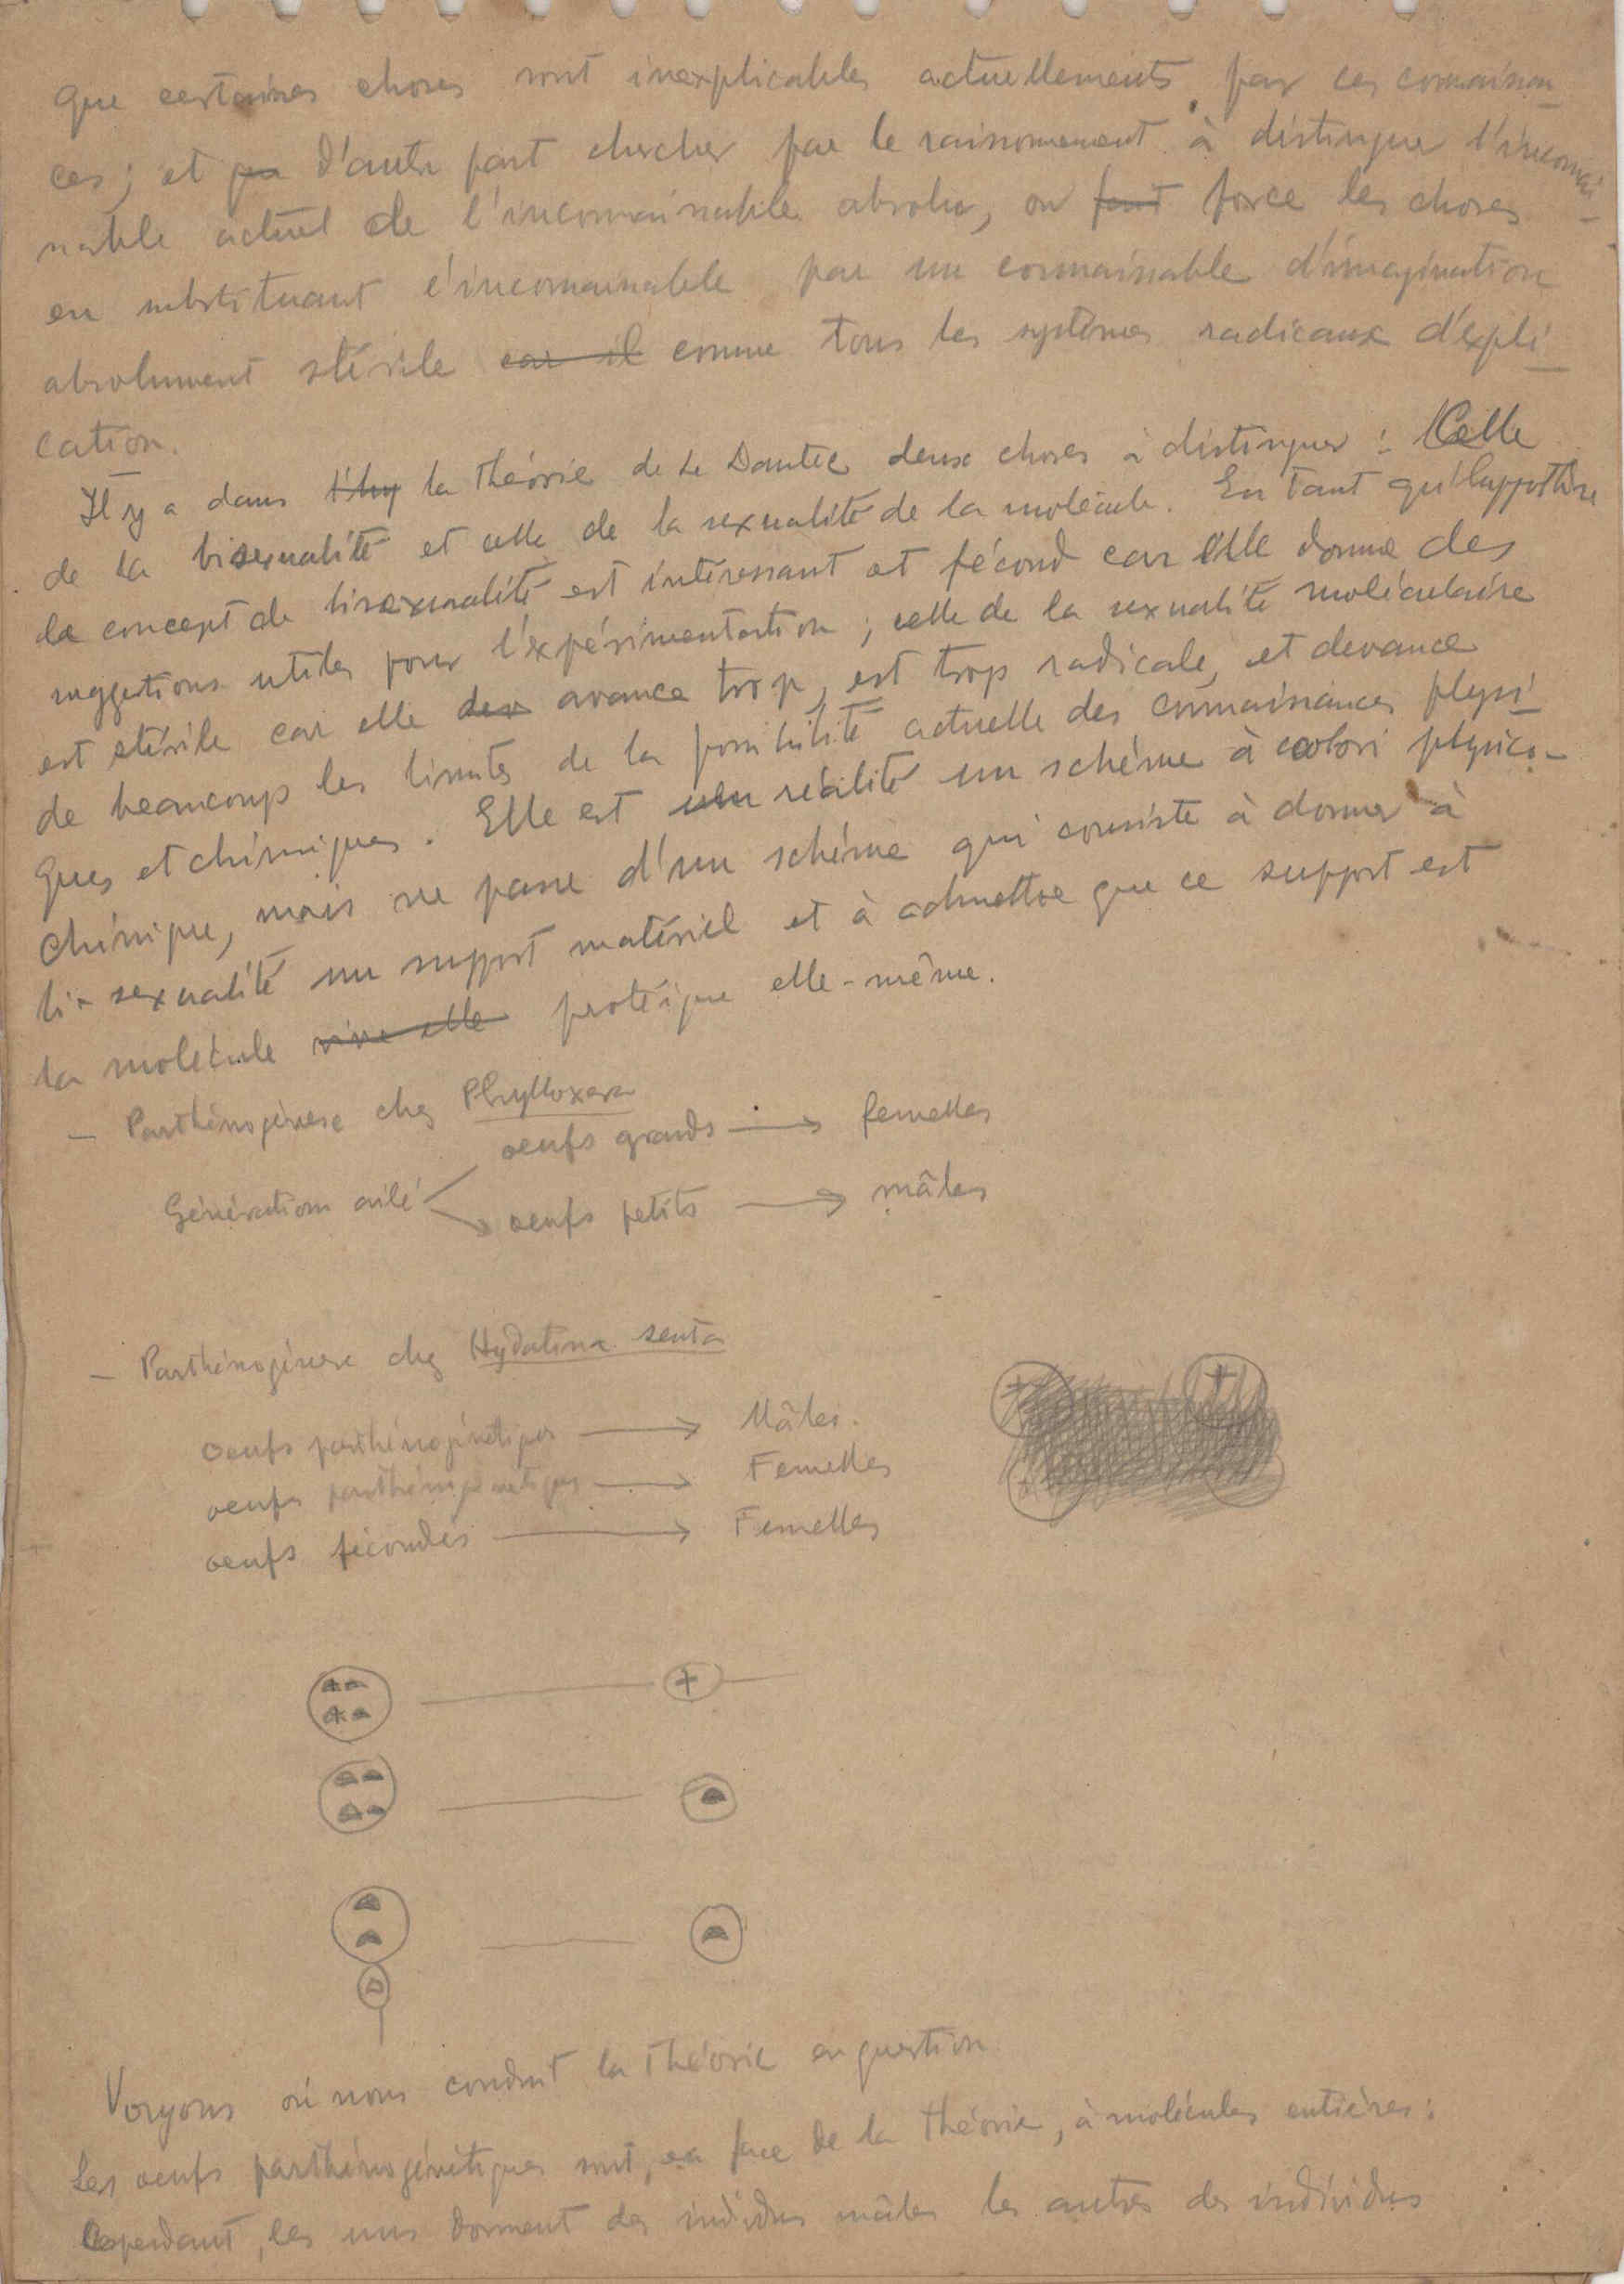 que certaines choses sont inexplicables actuellements par ces connaissan-
ces; et pa d'autre part chercher par le raisonnement à distinguer l'inconnais-
sable actuel de l'inconnaissable absolu, on fait force les choses
en substituant l'inconnaissable par un connaissable d'imagination
absolument stérile car il comme tous les systèmes radicaux d'expli-
cation.
Il y a dans l'hy la théorie de Le Dantec deux choses à distinguer : Celle
de la bisexualité et celle de la sexualité de la molécule. En tant qu'hypothèse
le concept de bisexualité est intéressant et fécond car elle donne des
suggestions utiles pour l'expérimentation ; celle de la sexualité moléculaire
est stérile car elle dev avance trop, est trop radicale, et devance
de beaucoup les limites de la possibilité actuelle des connaissances physi-
ques et chimiques. Elle est réalité un schéme à colori physico-
chimique, mais ne passe d'un schéme qui consiste à donner à
bi-sexualité un support matériel et à admettre que ce support est
la molécule vive elle protéique elle-même.
— Parthénogénese chez Phylloxera
oeufs grands → femelles
Génération ailé
oeufs petits → mâles
— Parthénogénese chez Hydatina senta
oeufs parthénogénétiques → Mâles.
oeufs parthénogénetiques → Femelles
oeufs fécondés → Femelles
Voyons où nous conduit la théorie en question
Les oeufs parthénogénétiques sont, en face de la théorie, à molécules entières :
Cependant, les uns donnent des individus mâles les autres des individus